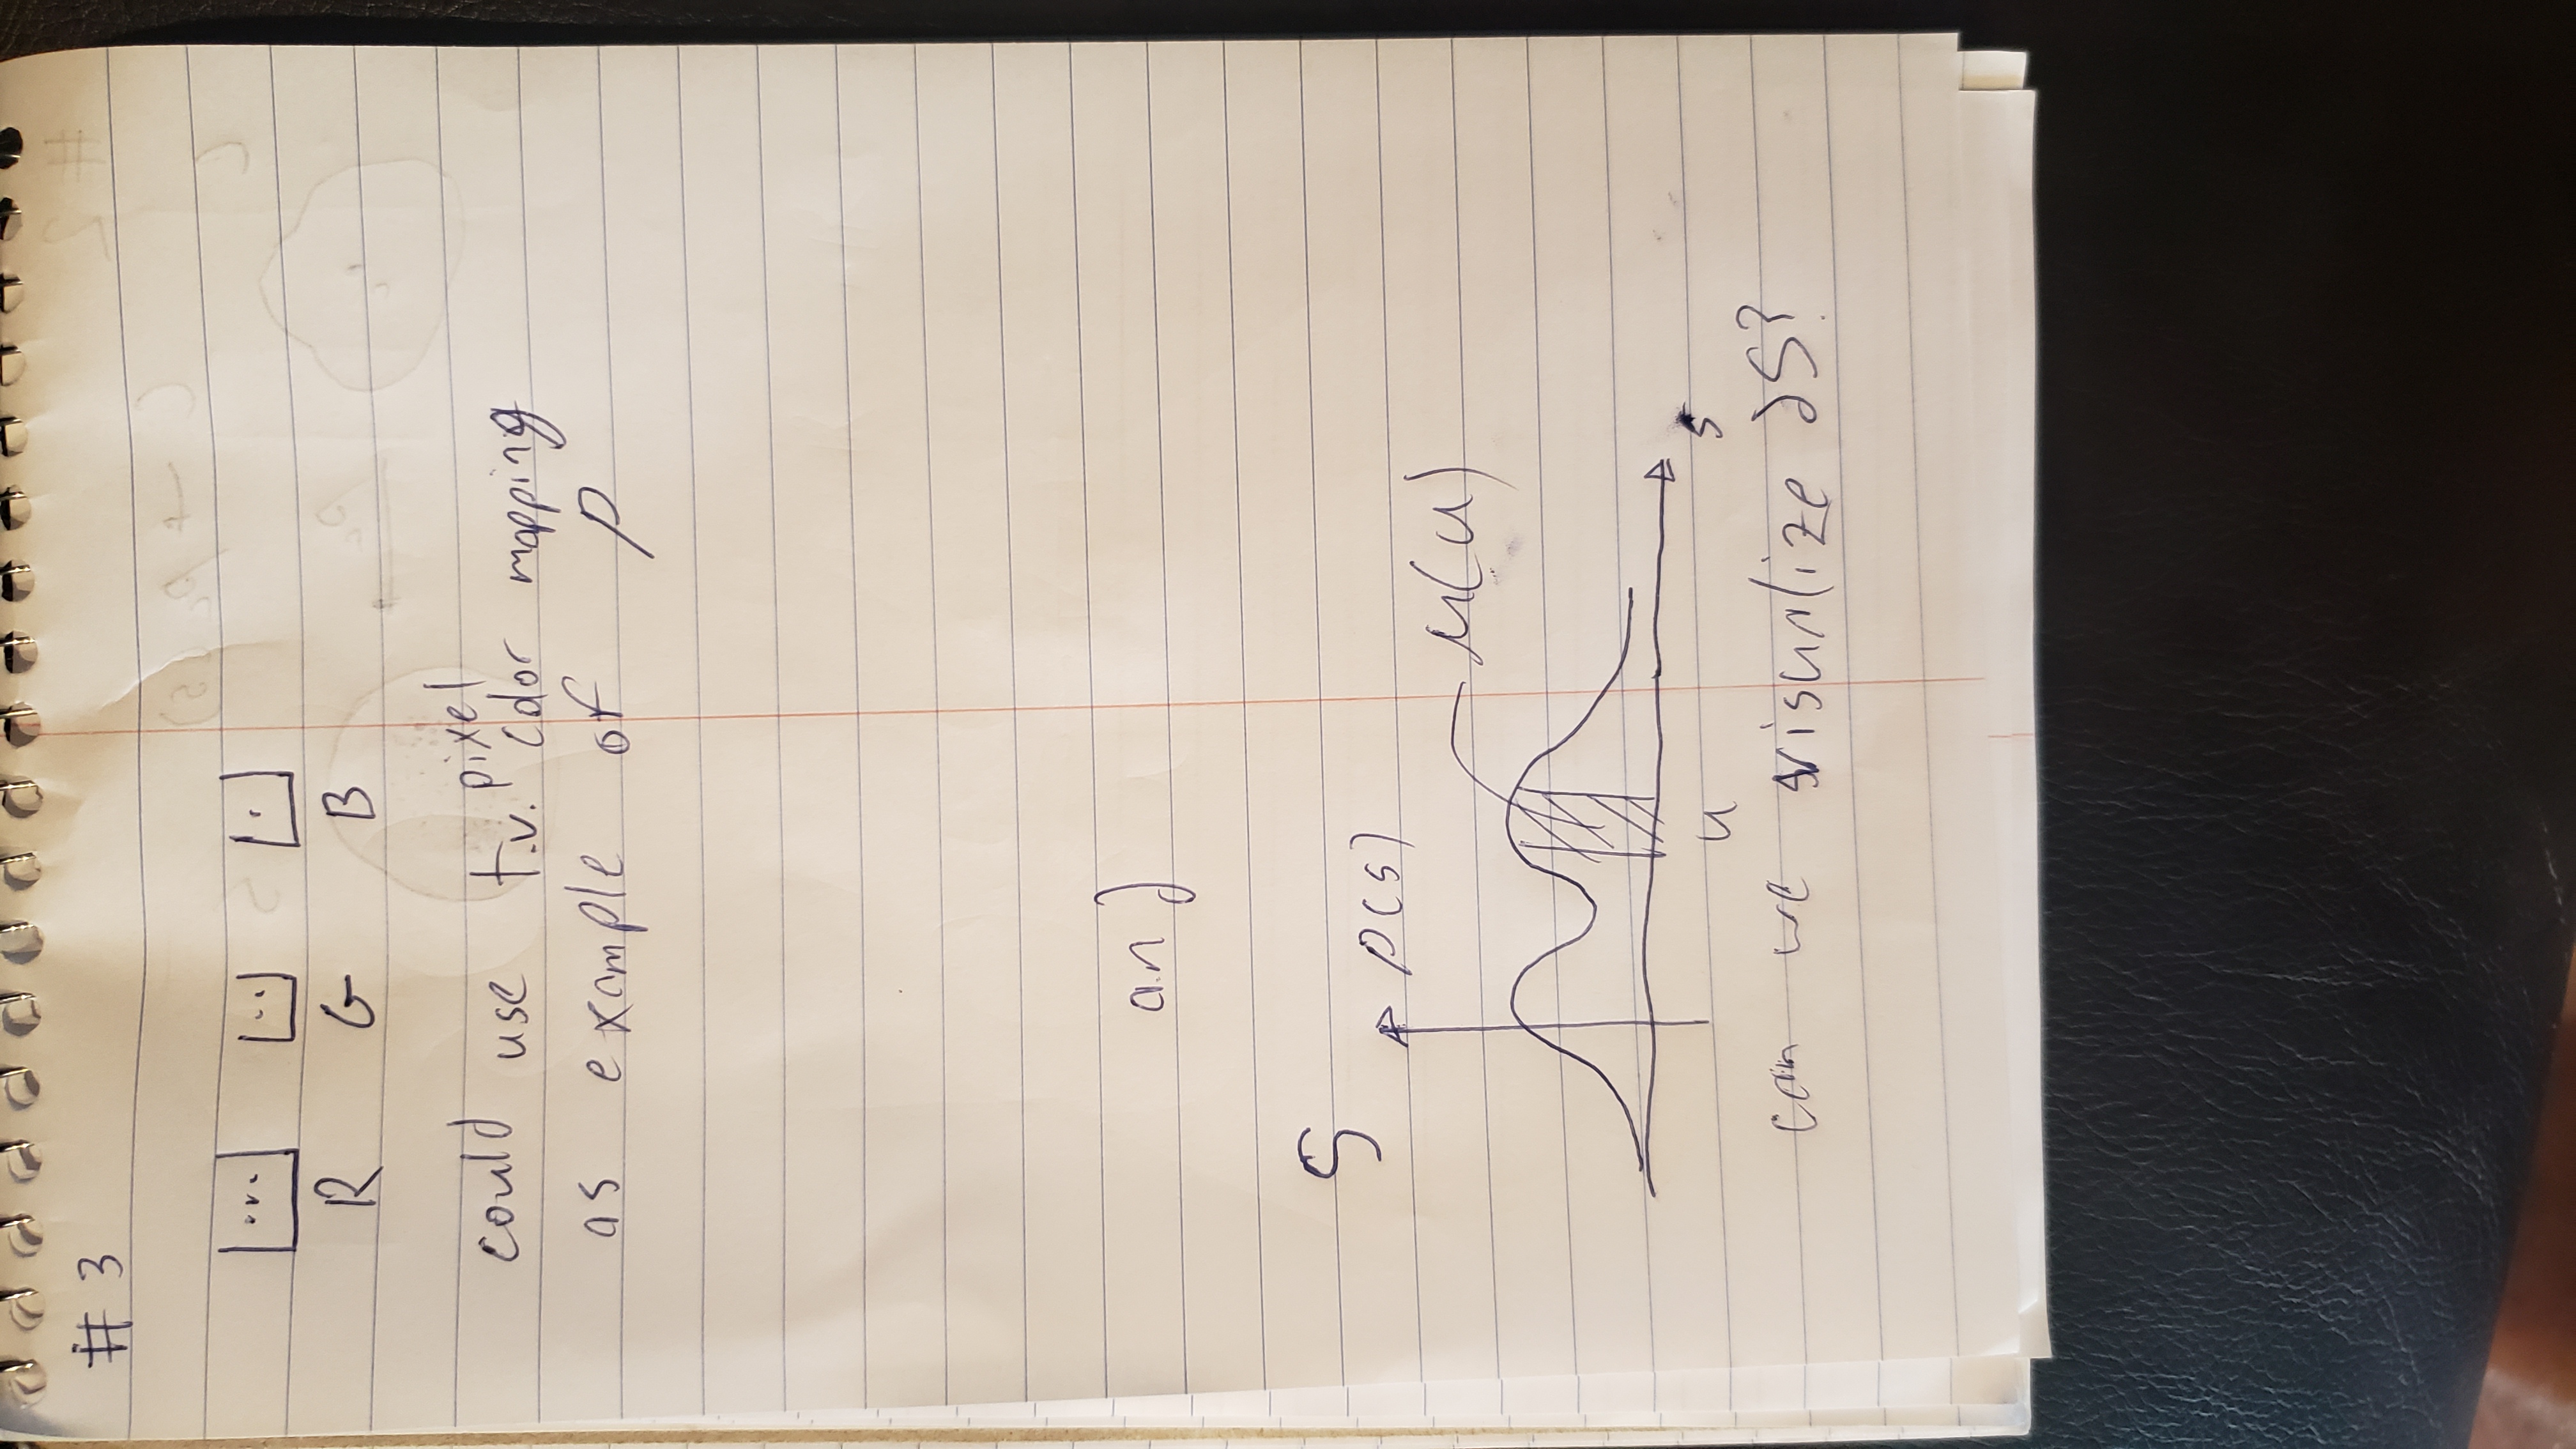 # 3
R G B
pixel
could use t.v. color mapping
as example of ρ
and
S
ρ(s)
μ(u)
u
s
can we visualize dS?